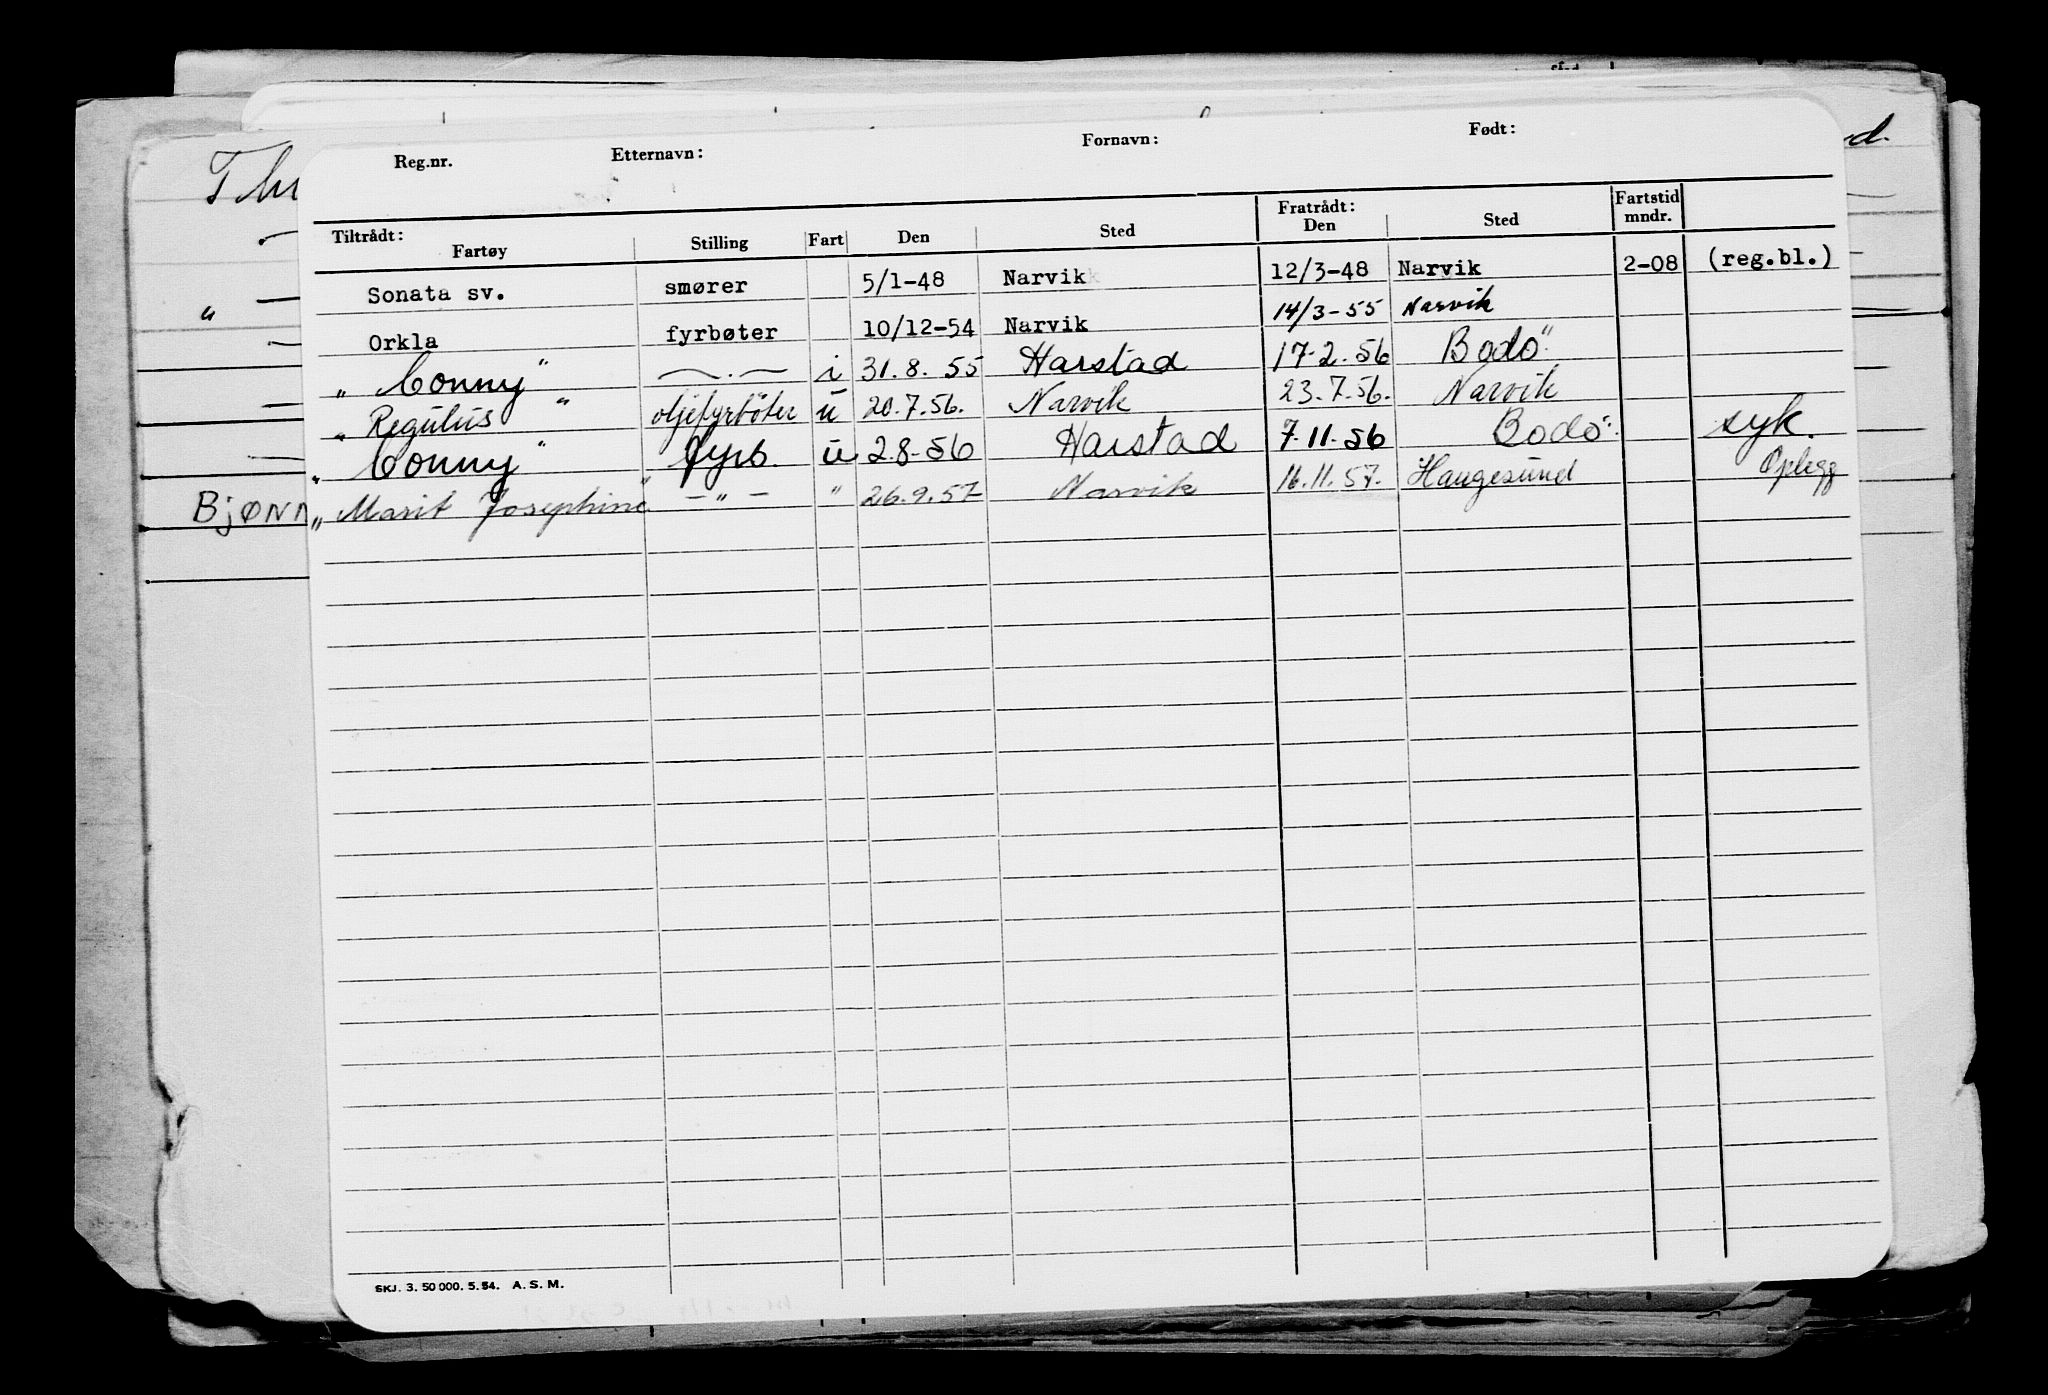 Reg.nr. Etternavn: Fornavn: Født:
Tiltrådt: Fratrådt: Fartstid
Fartøy Stilling Fart Den Sted Den Sted mndr.
Sonata sv. smører 5/1-48 Narvik 12/3-48 Narvik 2-08 (reg.bl.)
Orkla fyrbøter 10/12-54 Narvik 14/3-55 Narvik
" Conny " —.— i 31.8.55 Harstad 17-2.56 Bodö
" Regulus " oljefyrböter u 20.7.56. Narvik 23.7.56. Narvik
" Conny " fyrb. u 2.8-56 Harstad 7-11-56 Bodö. syk.
" Marit Josephine " — " — " 26.9.57 Narvik 16.11.57. Haugesund Oplegg
SKJ. 3. 50 000. 5. 54. A. S. M.